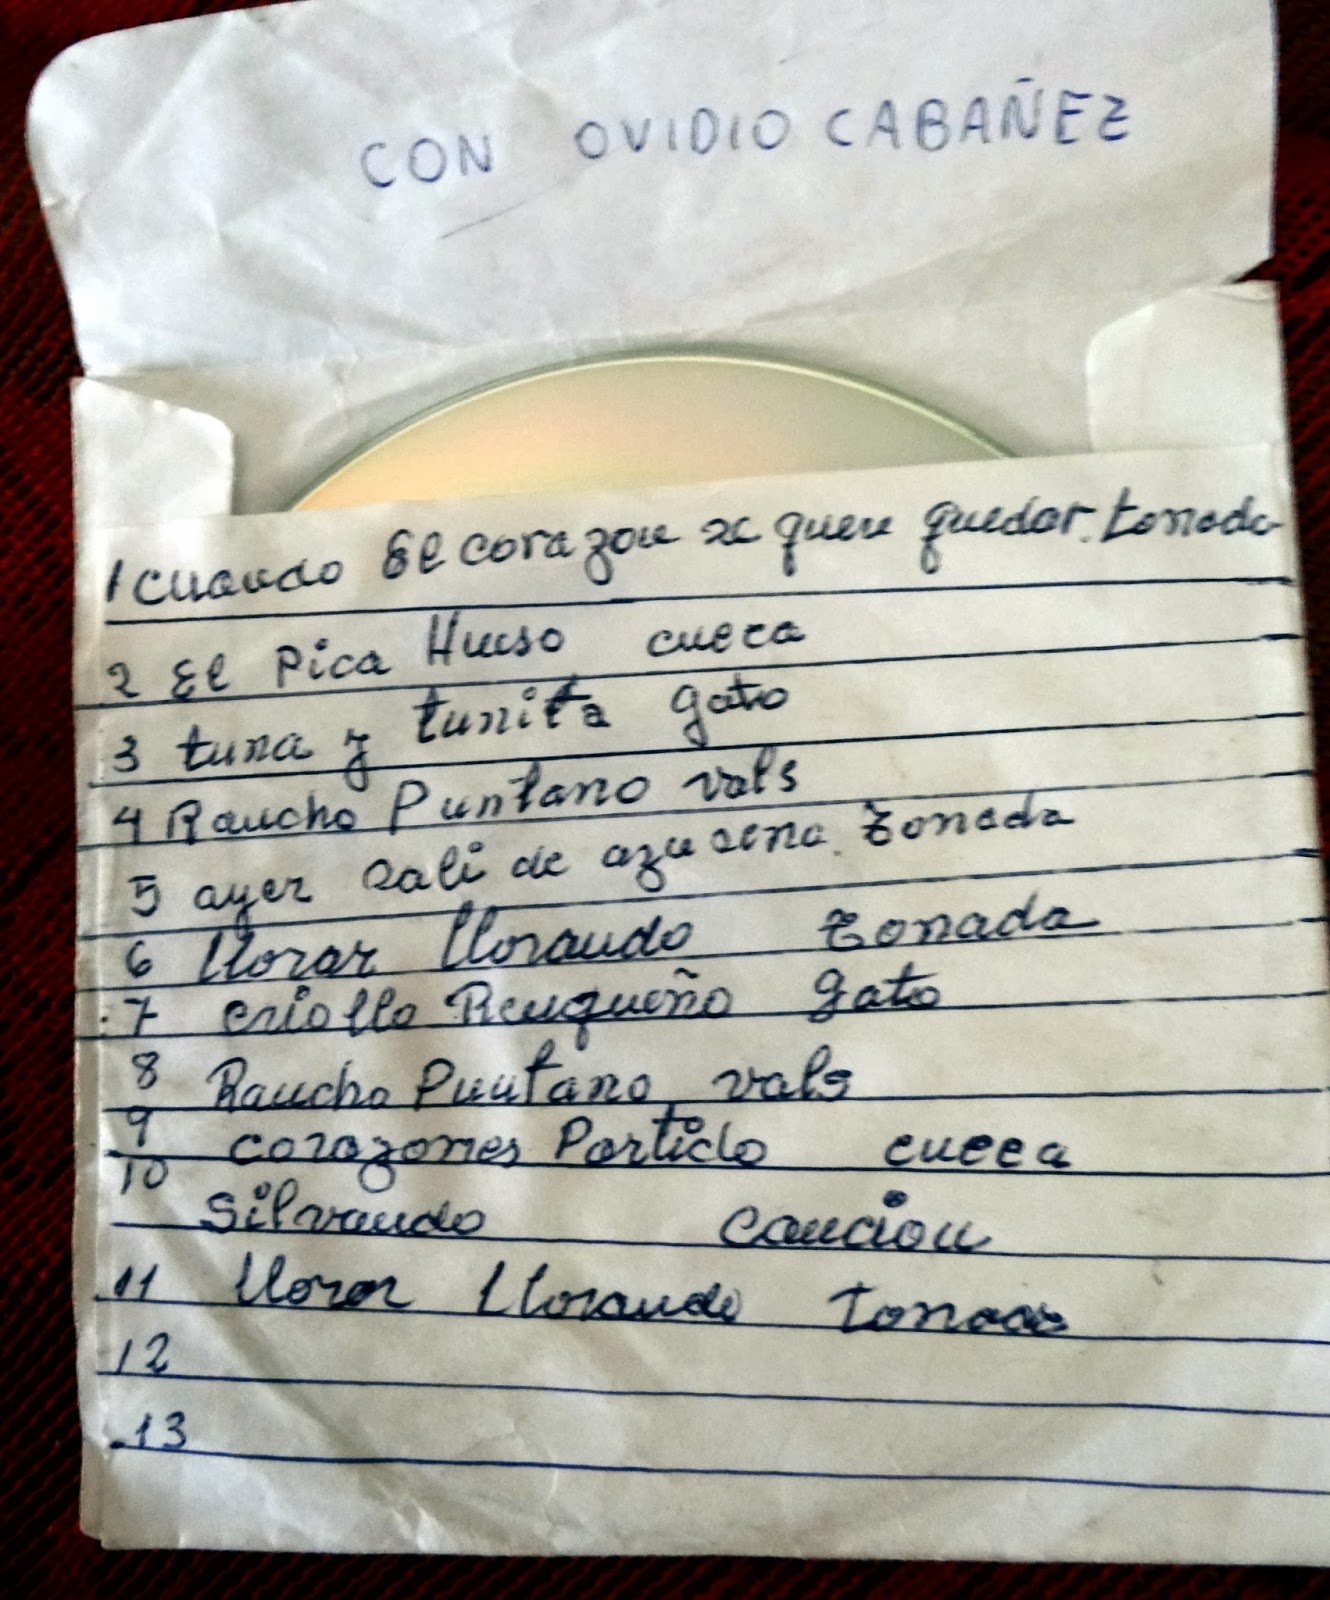 CON OVIDIO CABAÑEZ
1 cuando El corazon se quere quedar. tonada
2 El Pica Hueso cueca
3 tuna y tunita gato
4 Rancho Puntano vals
5 ayer sali de azusena. tonada
6 llorar llorando tonada
7 criollo Renqueño gato
8 Rancho Puntano vals
9 corazones Partido cueca
10 Silvando cancion
11 llorar llorando tonada
12
13